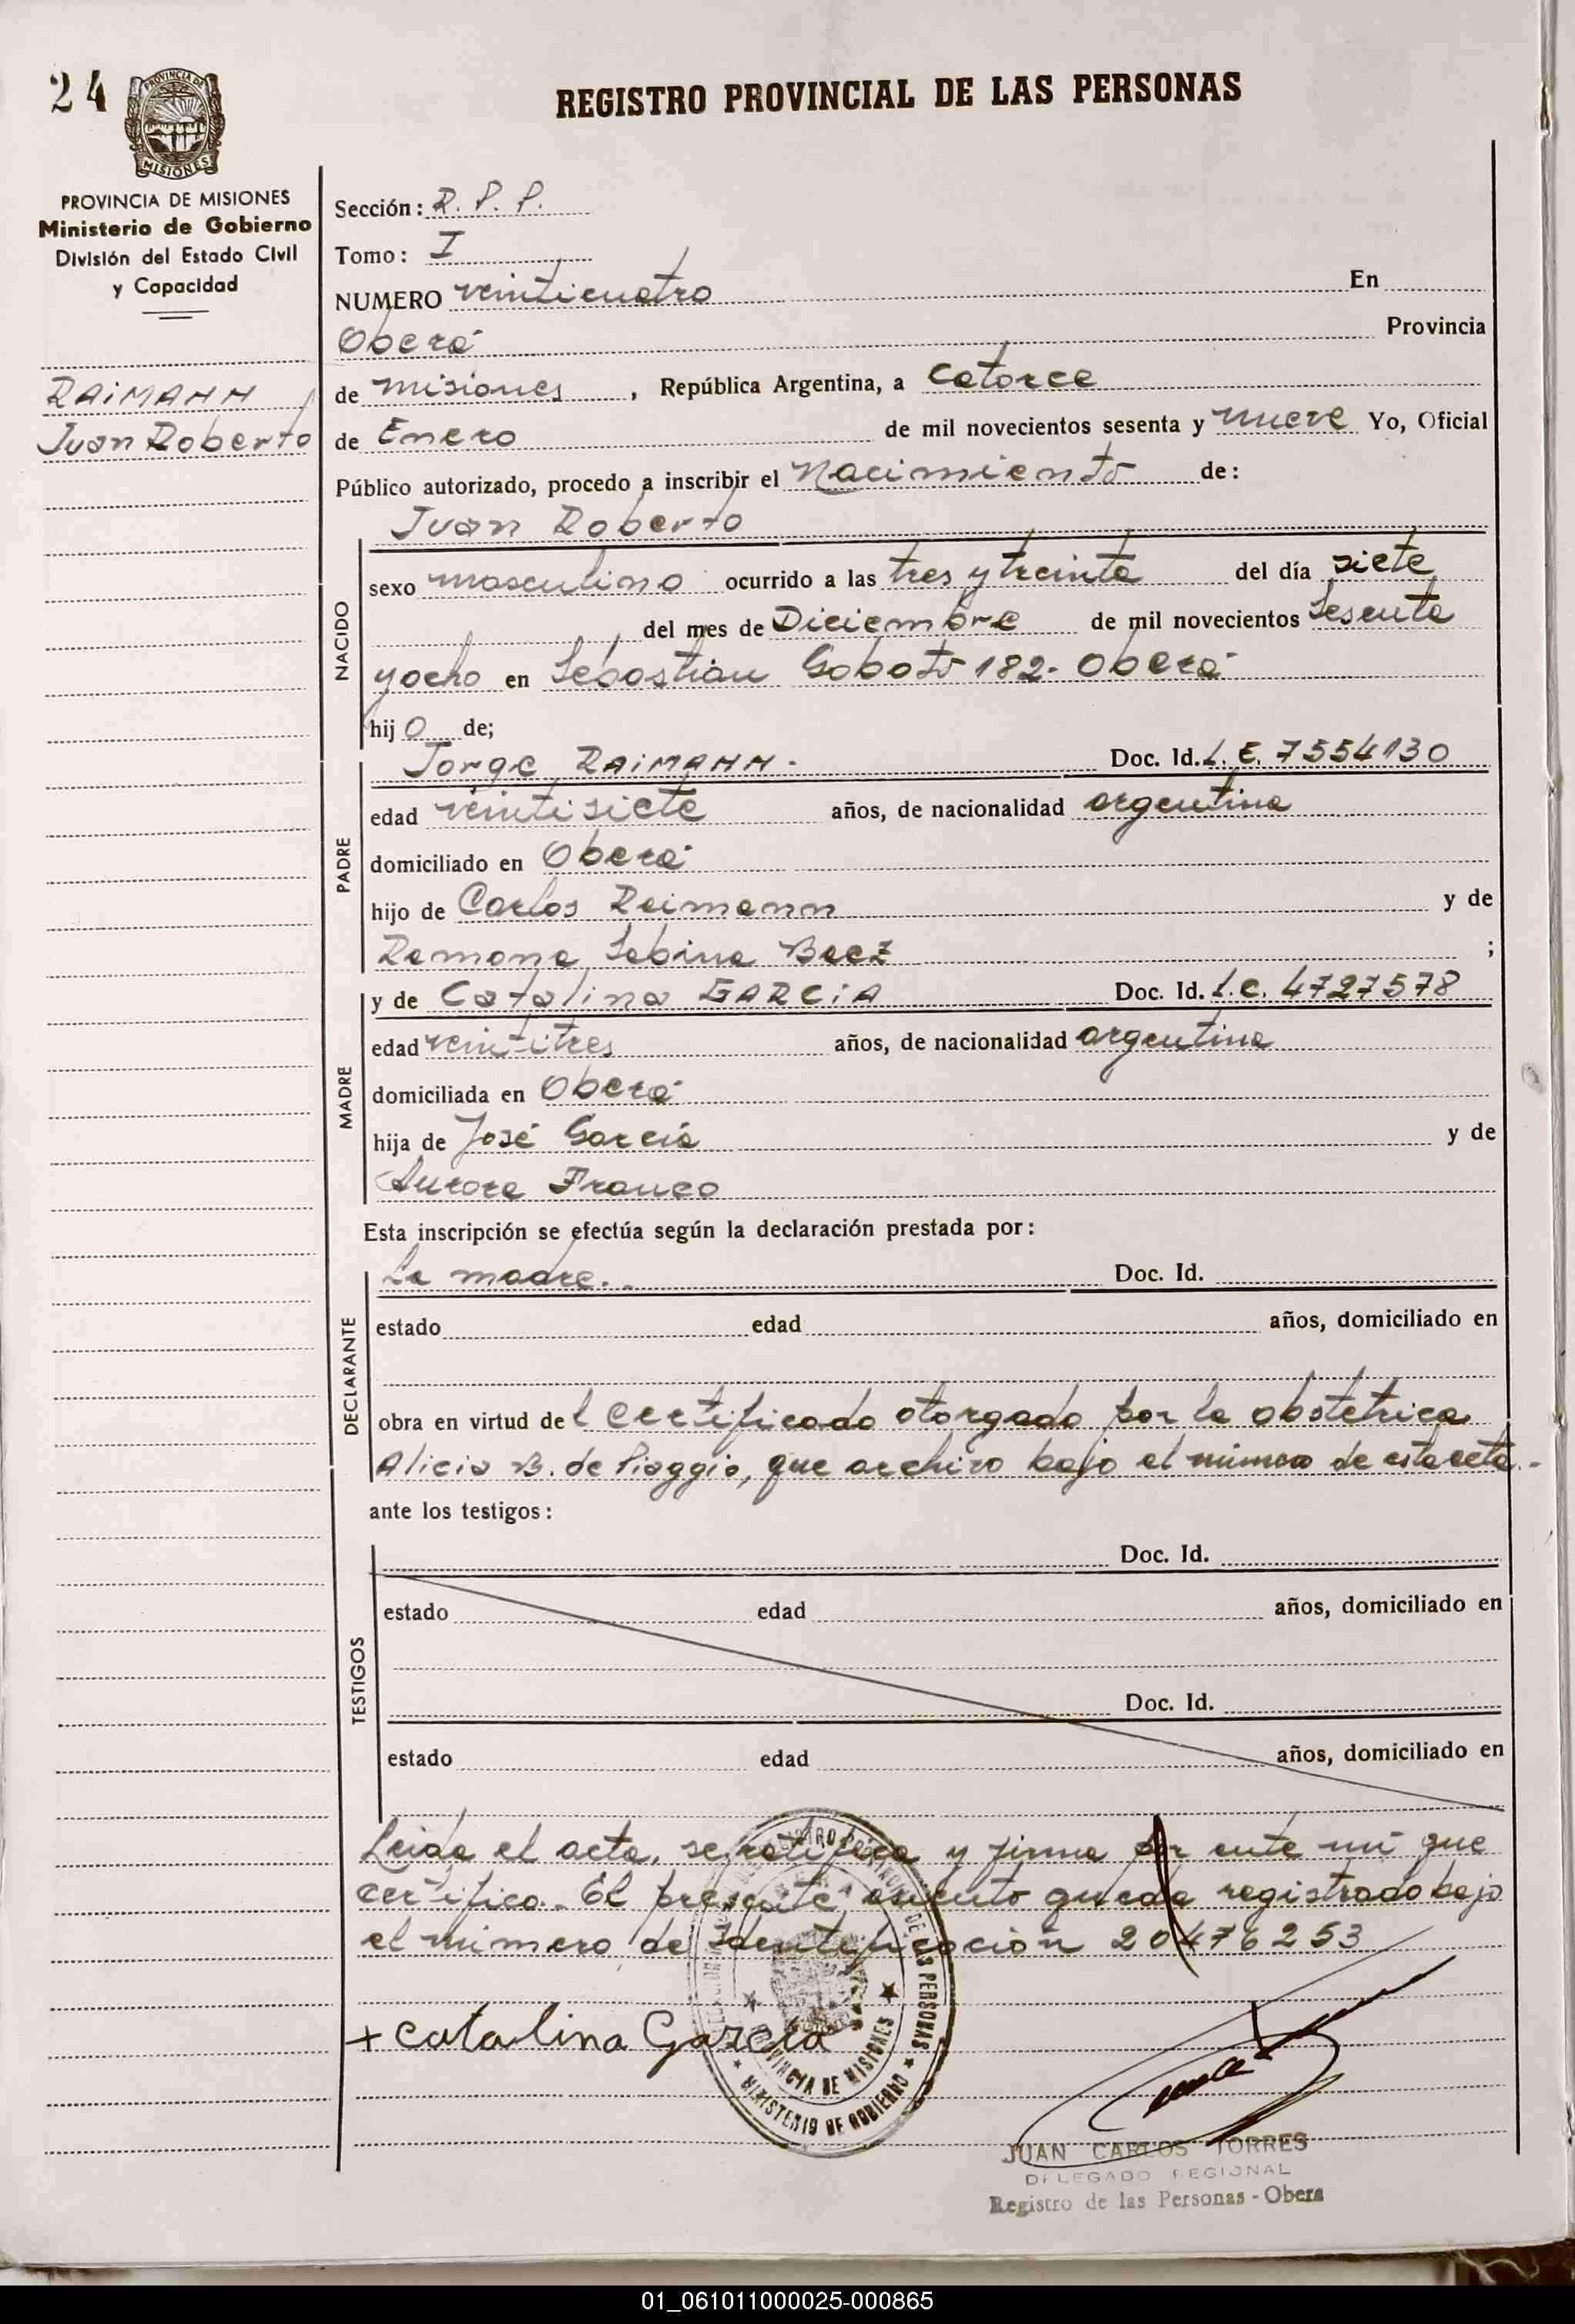 24
PROVINCIA DE
MISIONES
REGISTRO PROVINCIAL DE LAS PERSONAS
PROVINCIA DE MISIONES
Ministerio de Gobierno
División del Estado Civil
y Capacidad
RAIMANN
Juan Roberto
Sección: R. P. P.
Tomo: I
NUMERO veinticuatro En
Oberá Provincia
de misiones, República Argentina, a Catorce
de Enero de mil novecientos sesenta y nueve Yo, Oficial
Público autorizado, procedo a inscribir el Nacimiento de:
Juan Roberto
NACIDO
sexo masculino ocurrido a las tres y treinta del día siete
del mes de Diciembre de mil novecientos sesenta
y ocho en Sebastián Gaboto 182- Oberá
hijo de;
PADRE
Jorge RAIMANN.- Doc. Id. L. E. 7554130
edad veintisiete años, de nacionalidad argentina
domiciliado en Oberá
hijo de Carlos Raimann y de
Ramona Sabina Baez ;
MADRE
y de Catalina GARCIA Doc. Id. L.C. 4727578
edad veintitres años, de nacionalidad argentina
domiciliada en Oberá
hija de José García y de
Aurora Franco
Esta inscripción se efectúa según la declaración prestada por:
DECLARANTE
La madre.- Doc. Id.
estado edad años, domiciliado en
obra en virtud del certificado otorgado por la obstetrica
Alicia B. de Piaggio, que archivo bajo el número de esta acta.-
ante los testigos:
TESTIGOS
Doc. Id.
estado edad años, domiciliado en
Doc. Id.
estado edad años, domiciliado en
Leida el acta, se ratifica y firma por ante mí que
certifico.- El presente asiento queda registrado bajo
el número de Identificación 20476253
+ Catalina García
DE LAS PERSONAS
PROVINCIA DE MISIONES
MINISTERIO DE GOBIERNO
JUAN CARLOS TORRES
DELEGADO REGIONAL
Registro de las Personas - Obera
01_061011000025-000865